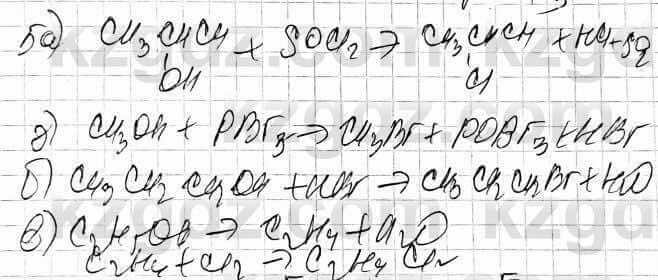 5а) CH3CHCH + SOCl2 → CH3CHCH + HCl + SO2
OH Cl
г) CH3OH + PBr5 → CH3Br + POBr3 + HBr
б) CH3 CH2 CH2OH + HBr → CH3 CH2 CH2Br + H2O
в) C2H5OH → C2H4 + H2O
C2H4 + Cl2 → C2H4 Cl2